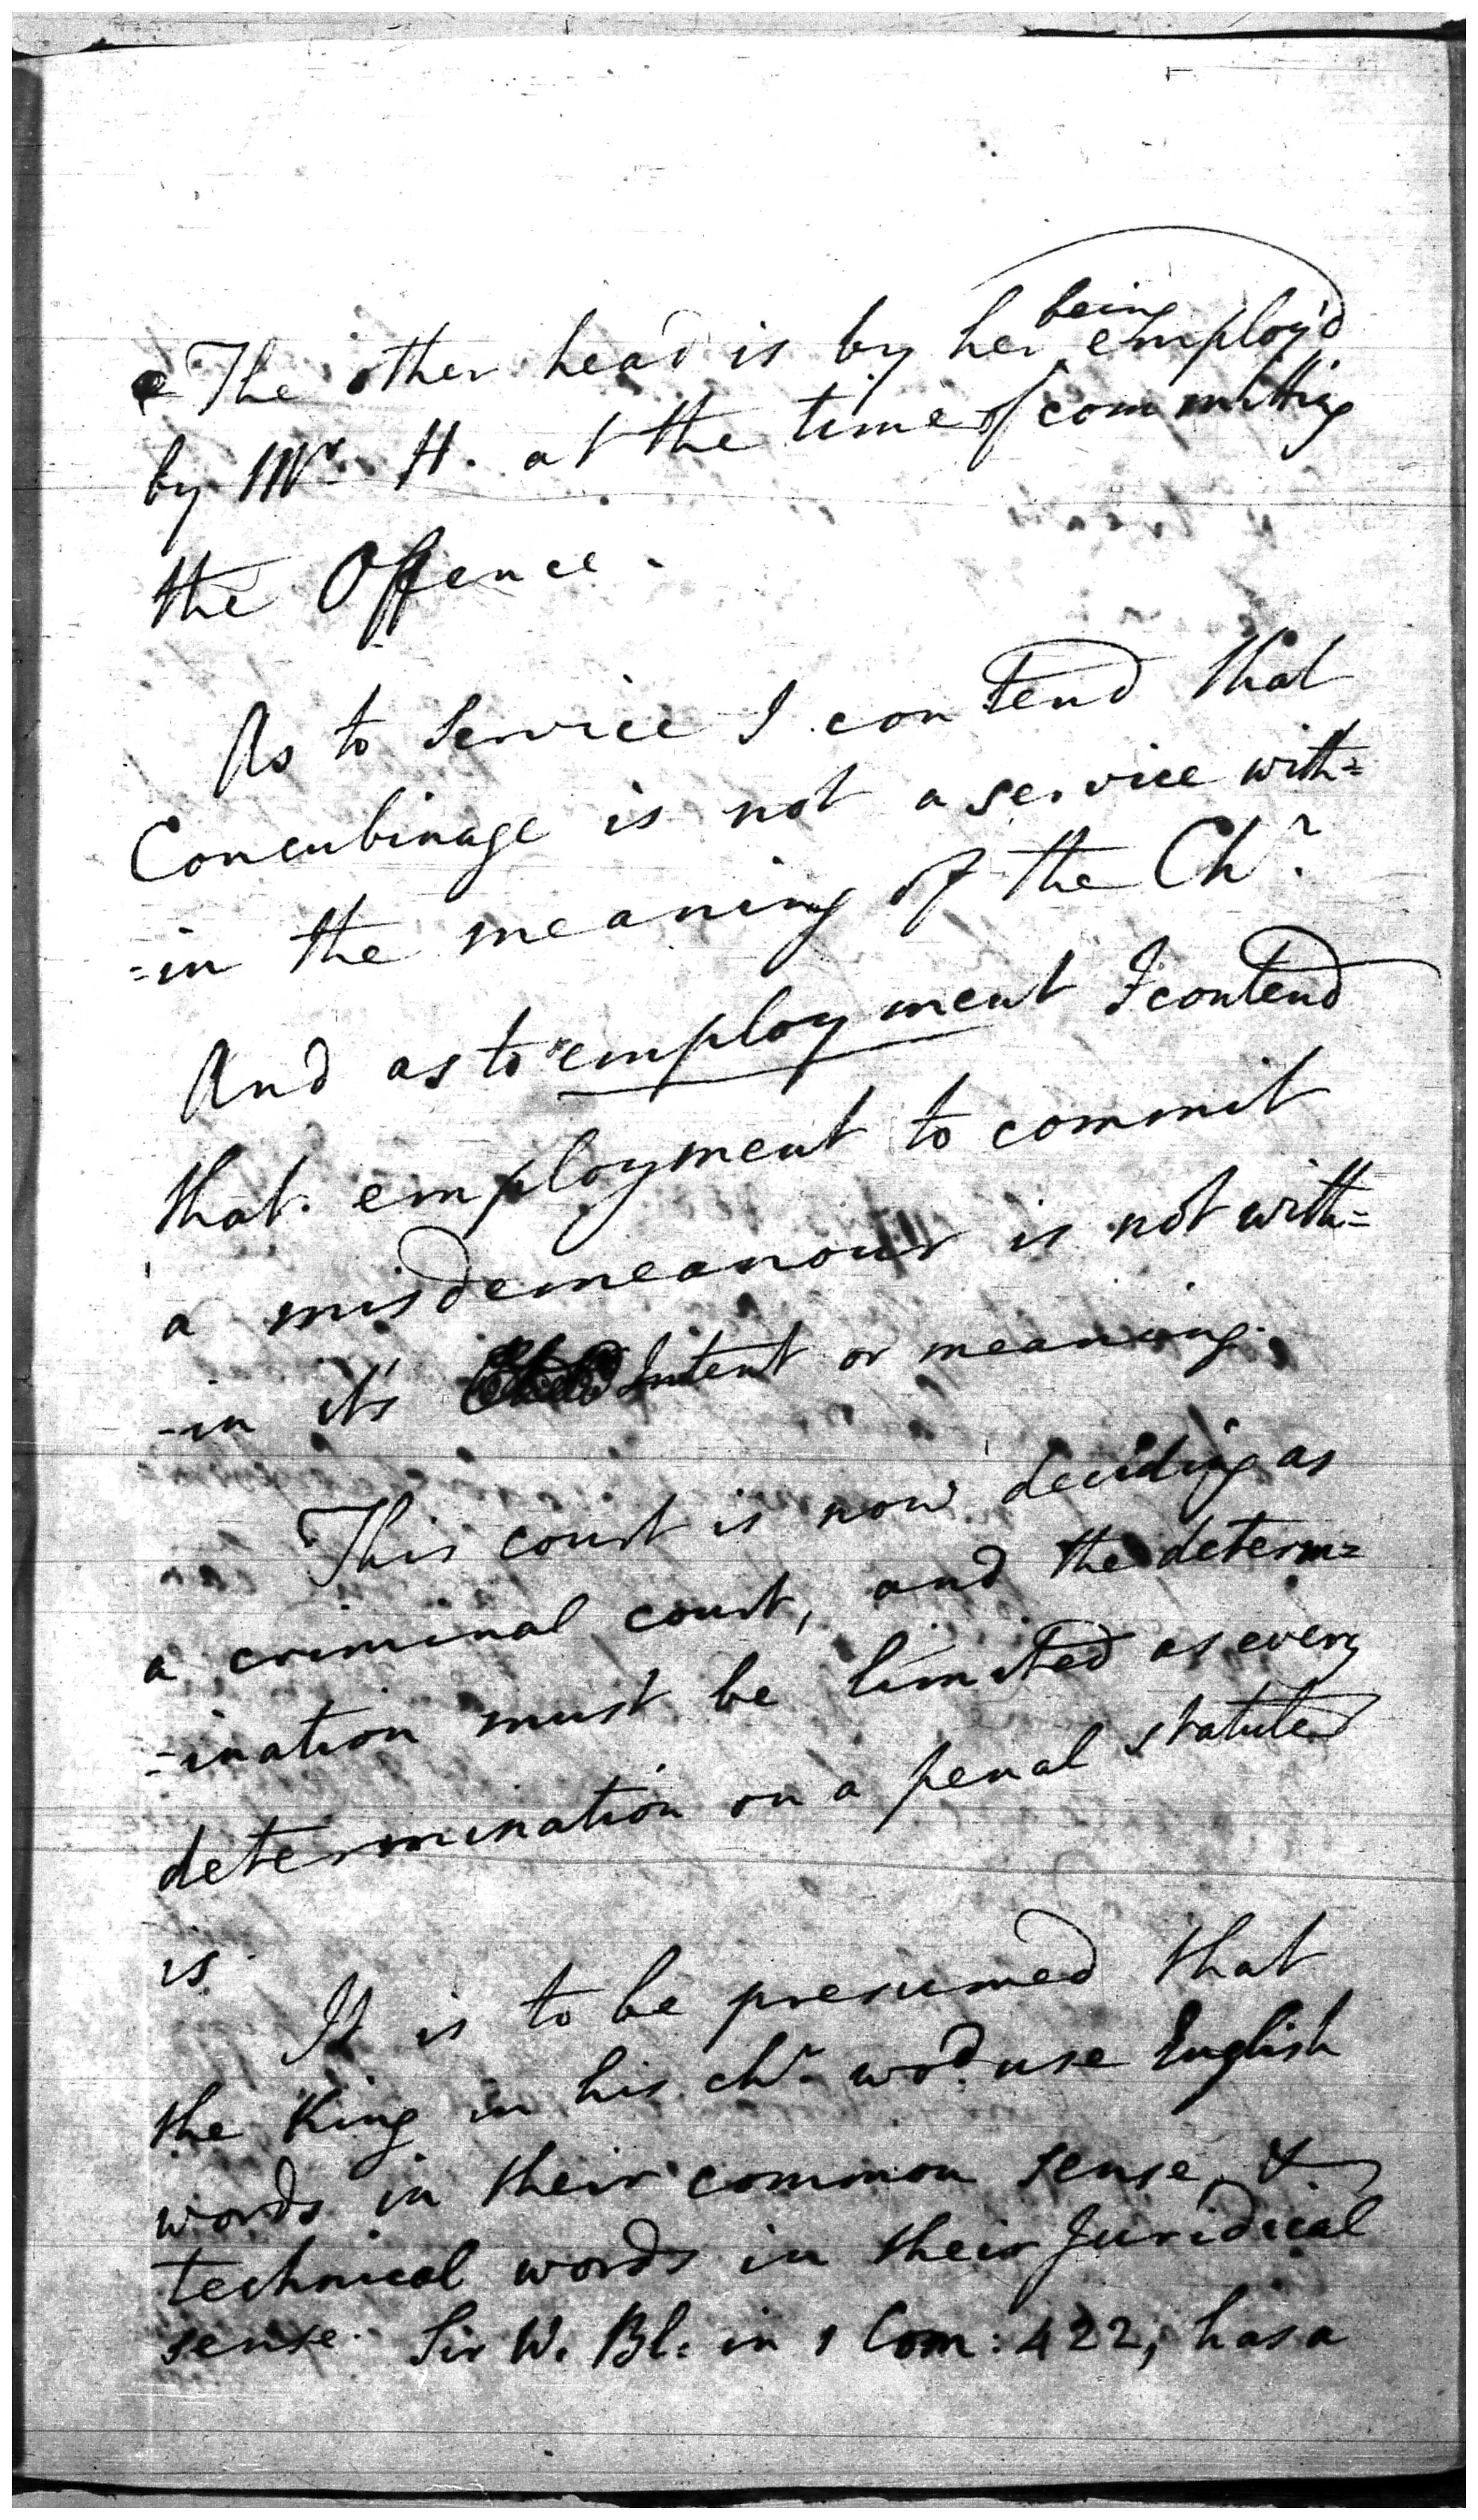 The other head is by her being employ'd
by Mr. H. at the time of committing
the Offence.
As to Service I contend that
Concubinage is not a service with=
=in the meaning of the Chr.
And as to employment I contend
that employment to commit
a misdemeanour is not with=
-in it's Intent or meaning.
This court is now deciding as
a criminal court, and the determ=
=ination must be limited as every
determination on a penal statute
is.
It is to be presumed that
the King in his chr. wod. use English
words in their common sense, &
technical words in their Juridical
sense. Sir W. Bl. in 1 Com: 422, has a